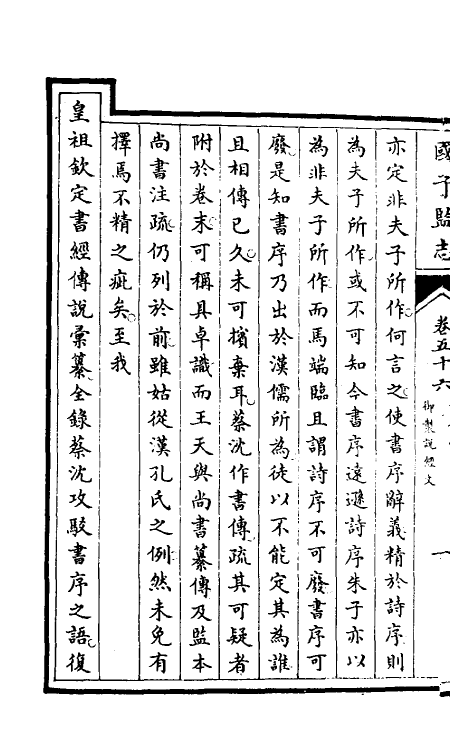 國子監志
卷五十六
御製說經文
一
亦定非夫子所作何言之使書序辭義精於詩序則
為夫子所作或不可知今書序遠遜詩序朱子亦以
為非夫子所作而馬端臨且謂詩序不可廢書序可
廢是知書序乃出於漢儒所為徒以不能定其為誰
且相傳已久未可擯棄耳蔡沈作書傳疏其可疑者
附於卷末可稱具卓識而王天與尚書纂傳及監本
尚書注疏仍列於前雖姑從漢孔氏之例然未免有
擇焉不精之疵矣至我
皇祖欽定書經傳說彙纂全錄蔡沈攻駁書序之語復